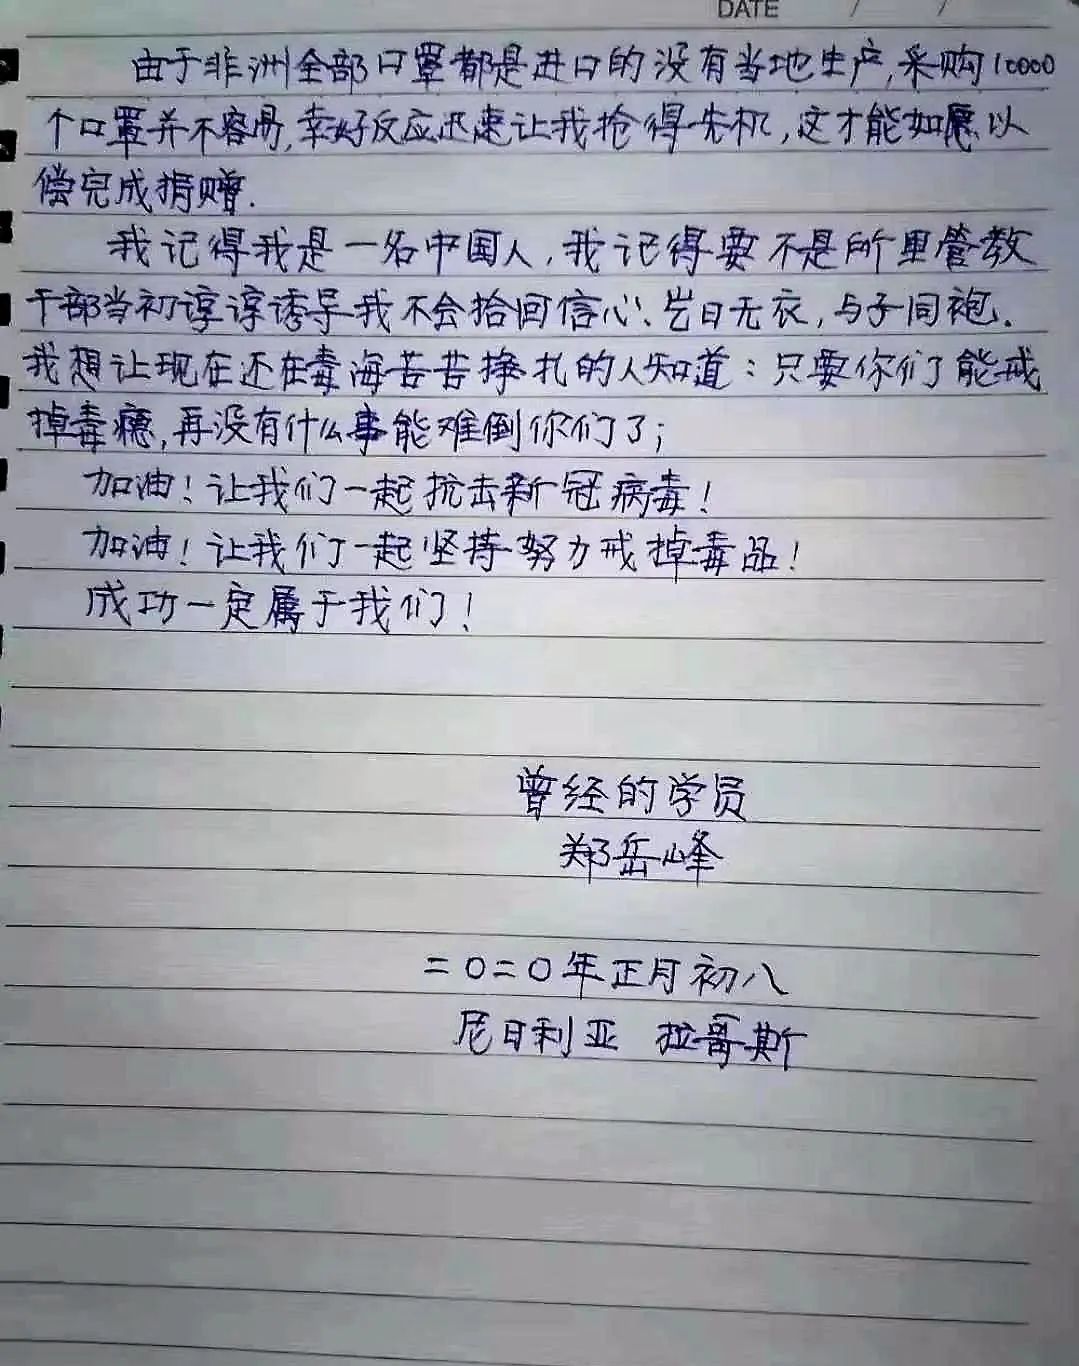 DATE / /
由于非洲全部口罩都是进口的没有当地生产,采购10000
个口罩并不容易,幸好反应迅速让我抢得先机,这才能如愿以
偿完成捐赠.
我记得我是一名中国人,我记得要不是所里管教
干部当初谆谆诱导我不会拾回信心、岂曰无衣,与子同袍.
我想让现在还在毒海苦苦挣扎的人知道:只要你们能戒
掉毒瘾,再没有什么事能难倒你们了;
加油!让我们一起抗击新冠病毒!
加油!让我们一起坚持努力戒掉毒品!
成功一定属于我们!
曾经的学员
郑岳峰
二〇二〇年正月初八
尼日利亚 拉哥斯